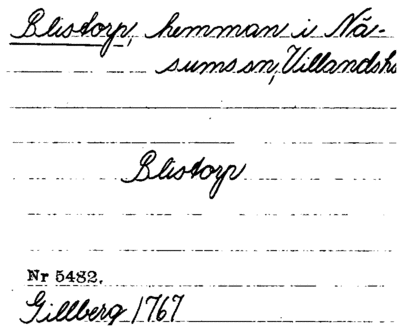 Blistorp, hemman i Nä-
sums sn, Villandshd
Blistorp
Nr 5482.
Gillberg 1767